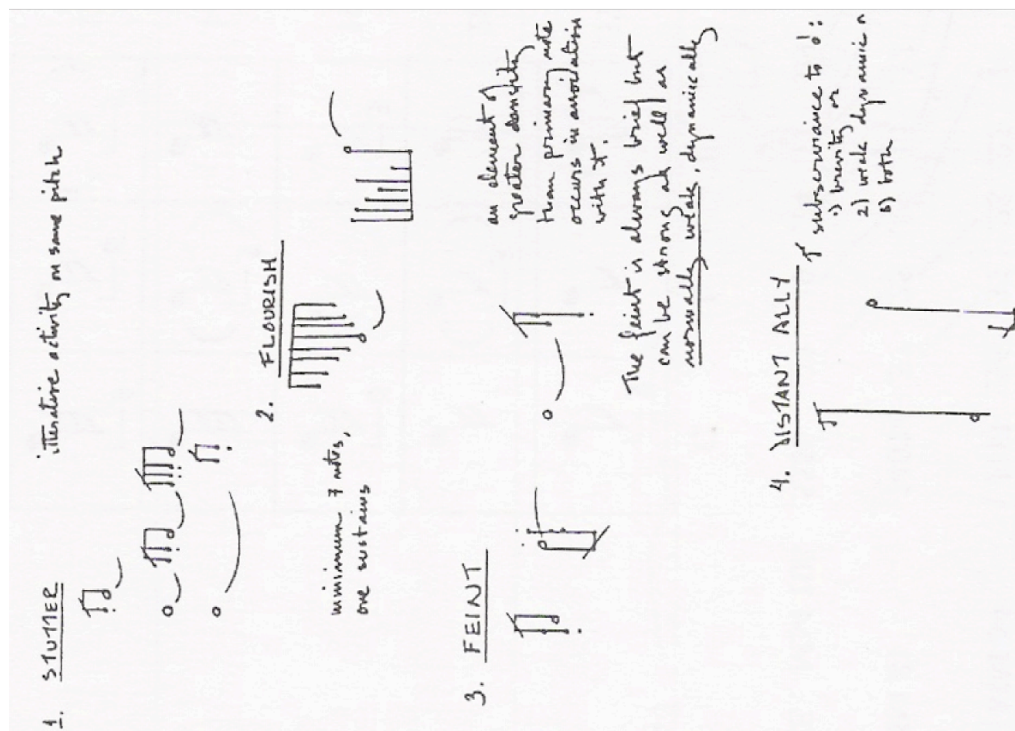 1. STUTTER
itterative activity on same pitch
2. FLOURISH
minimum 7 notes,
one sustains
3. FEINT
an element of
greater density
than primary note
occurs in
with it.
The feint is always brief but
can be strong as well as
normally weak, dynamically
4. DISTANT ALLY
subservience to :
1) brevity or
2) weak dynamic or
3) both